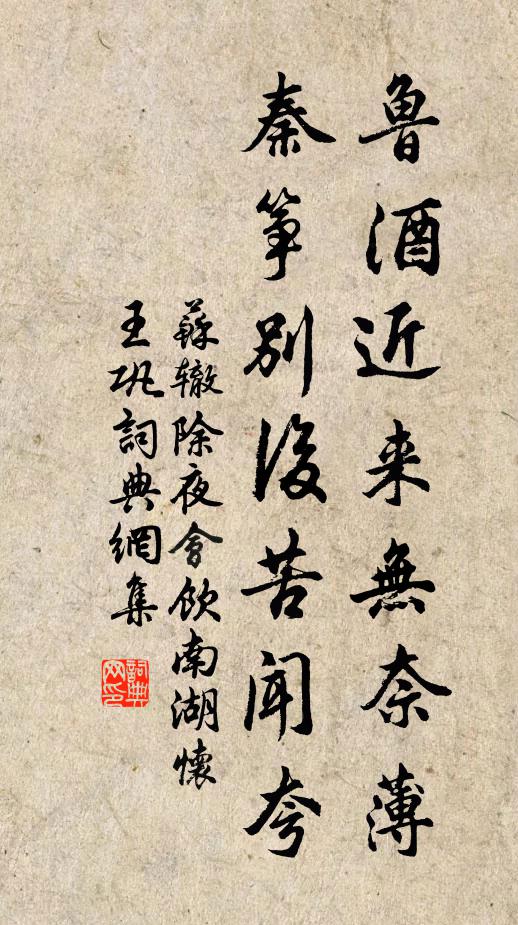 魯酒近来無奈薄
秦筝别後苦聞夸
蘇辙除夜會飲南湖懷
王巩詞典網集
詞典网印